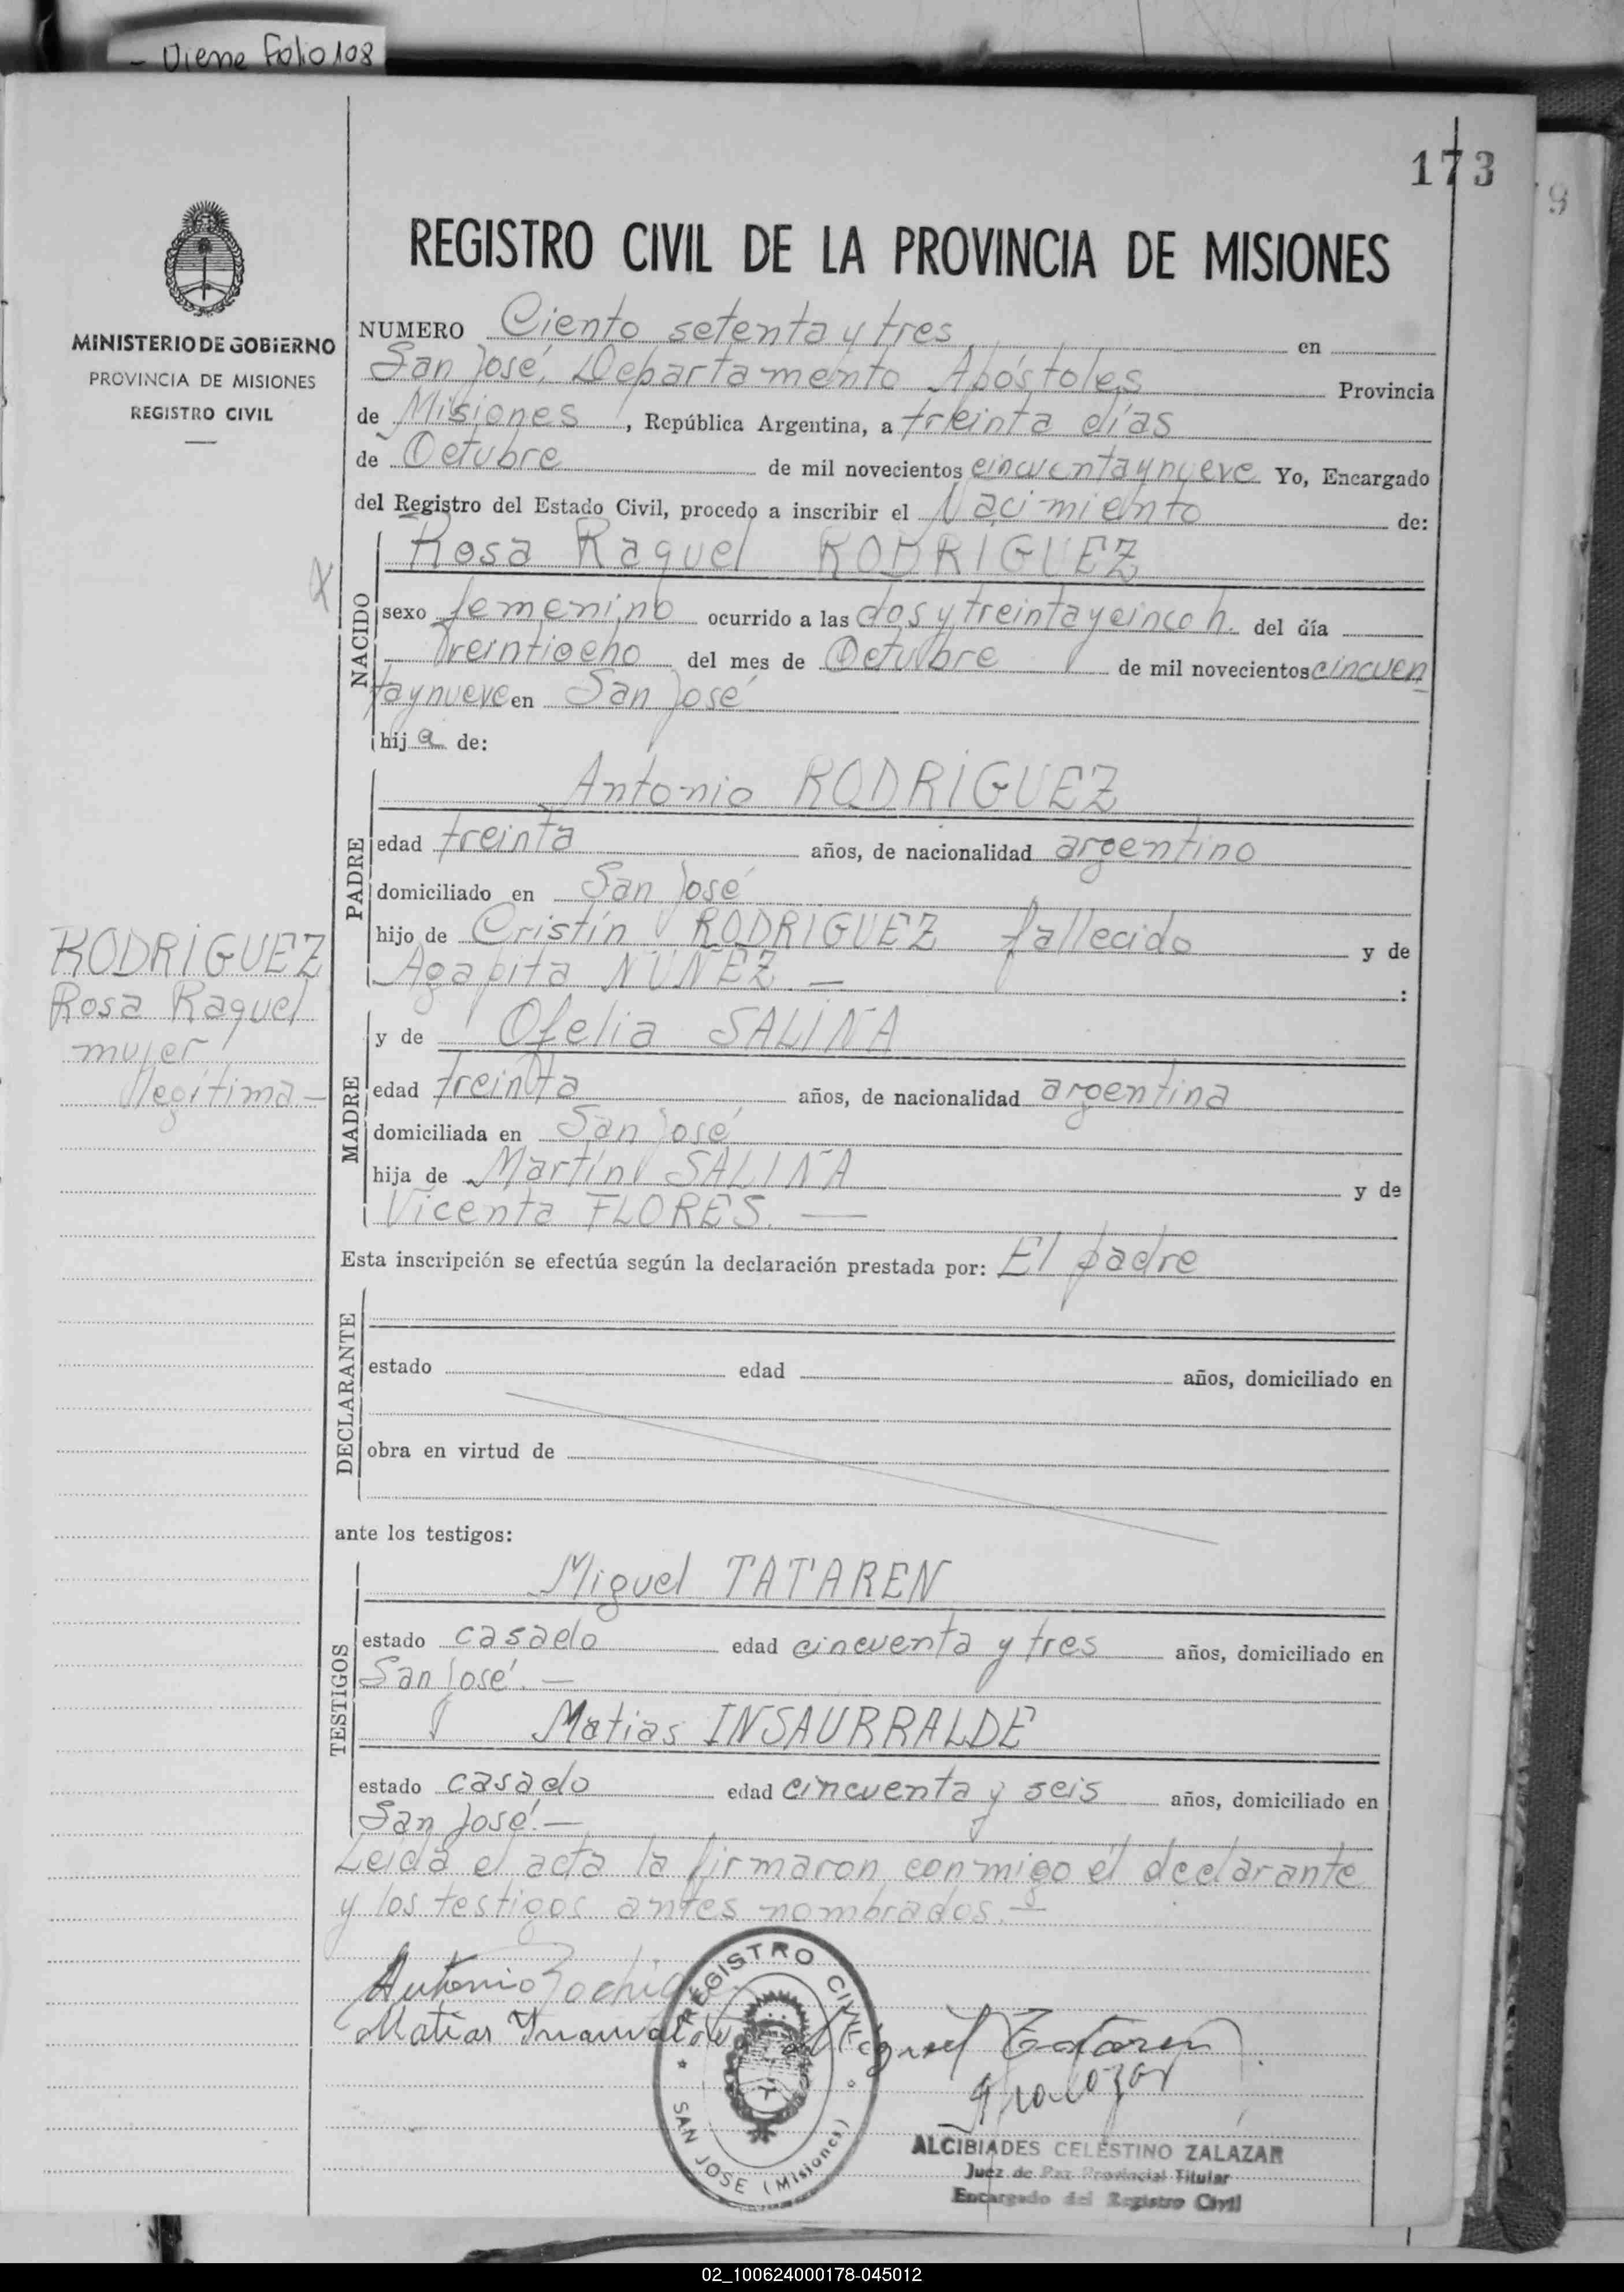 - Viene Folio 108
173
9
REGISTRO CIVIL DE LA PROVINCIA DE MISIONES
MINISTERIO DE GOBIERNO
PROVINCIA DE MISIONES
REGISTRO CIVIL
NUMERO Ciento setenta y tres en
San José, Departamento Apóstoles Provincia
de Misiones, República Argentina, a treinta días
de Octubre de mil novecientos cincuenta y nueve Yo, Encargado
del Registro del Estado Civil, procedo a inscribir el Nacimiento de:
NACIDO
Rosa Raquel RODRIGUEZ
sexo femenino ocurrido a las dos y treinta y cinco h. del día
Treintiocho del mes de Octubre de mil novecientos cincuen
ta y nueve en San José
hija de:
PADRE
Antonio RODRIGUEZ
edad treinta años, de nacionalidad argentino
domiciliado en San José
hijo de Cristín RODRIGUEZ fallecido y de
Agapita NUÑEZ —:
RODRIGUEZ
Rosa Raquel
mujer
Ilegítima —
MADRE
y de Ofelia SALINA
edad treinta años, de nacionalidad argentina
domiciliada en San José
hija de Martín SALINA y de
Vicenta FLORES. —
Esta inscripción se efectúa según la declaración prestada por: El padre
DECLARANTE
estado edad años, domiciliado en
obra en virtud de
ante los testigos:
TESTIGOS
Miguel TATAREN
estado casado edad cincuenta y tres años, domiciliado en
San José. —
Matias INSAURRALDE
estado casado edad cincuenta y seis años, domiciliado en
San José. —
Leida el acta la firmaron conmigo el declarante
y los testigos antes nombrados. —
Antonio
Matias
Miguel Tataren
REGISTRO CIVIL
SAN JOSE (Misiones)
ALCIBIADES CELESTINO ZALAZAR
Juez de Paz Provincial Titular
Encargado del Registro Civil
02_100624000178-045012